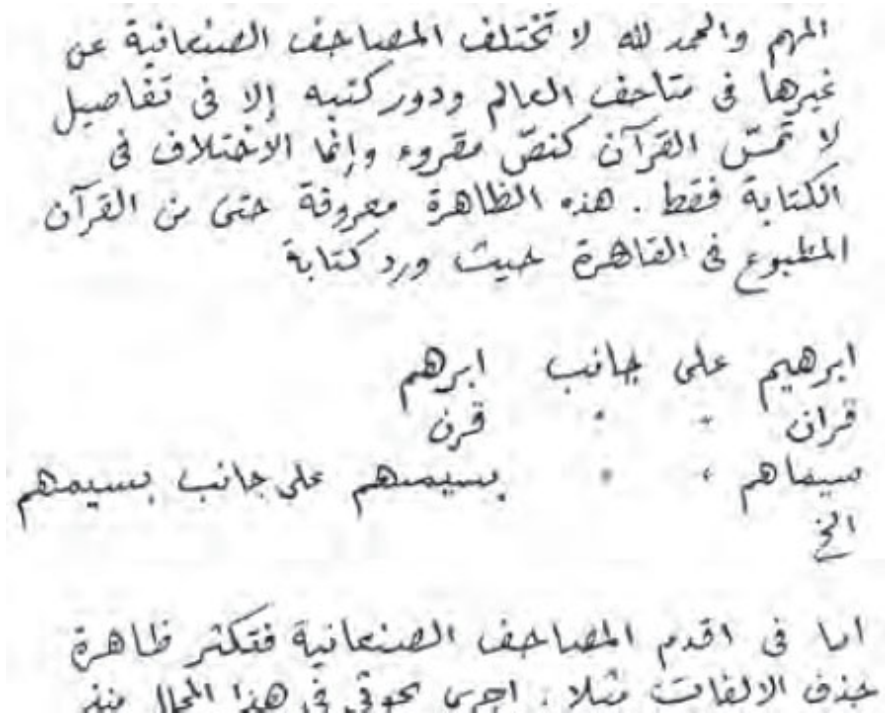 المهم والحمد لله لا تختلف المصاحف الصنعانية عن
غيرها فى متاحف العالم ودور كتبه إلا فى تفاصيل
لا تمسّ القرآن كنصّ مقروء وإنما الاختلاف فى
الكتابة فقط . هذه الظاهرة معروفة حتى من القرآن
المطبوع فى القاهرة حيث ورد كتابة
ابرهيم على جانب ابرهم
قران " " قرن
سيماهم " " بسيمىهم على جانب بسيمهم
الخ
اما فى اقدم المصاحف الصنعانية فتكثر ظاهرة
حذف الالفات مثلا . اجرى بحوثي في هذا المجال منذ